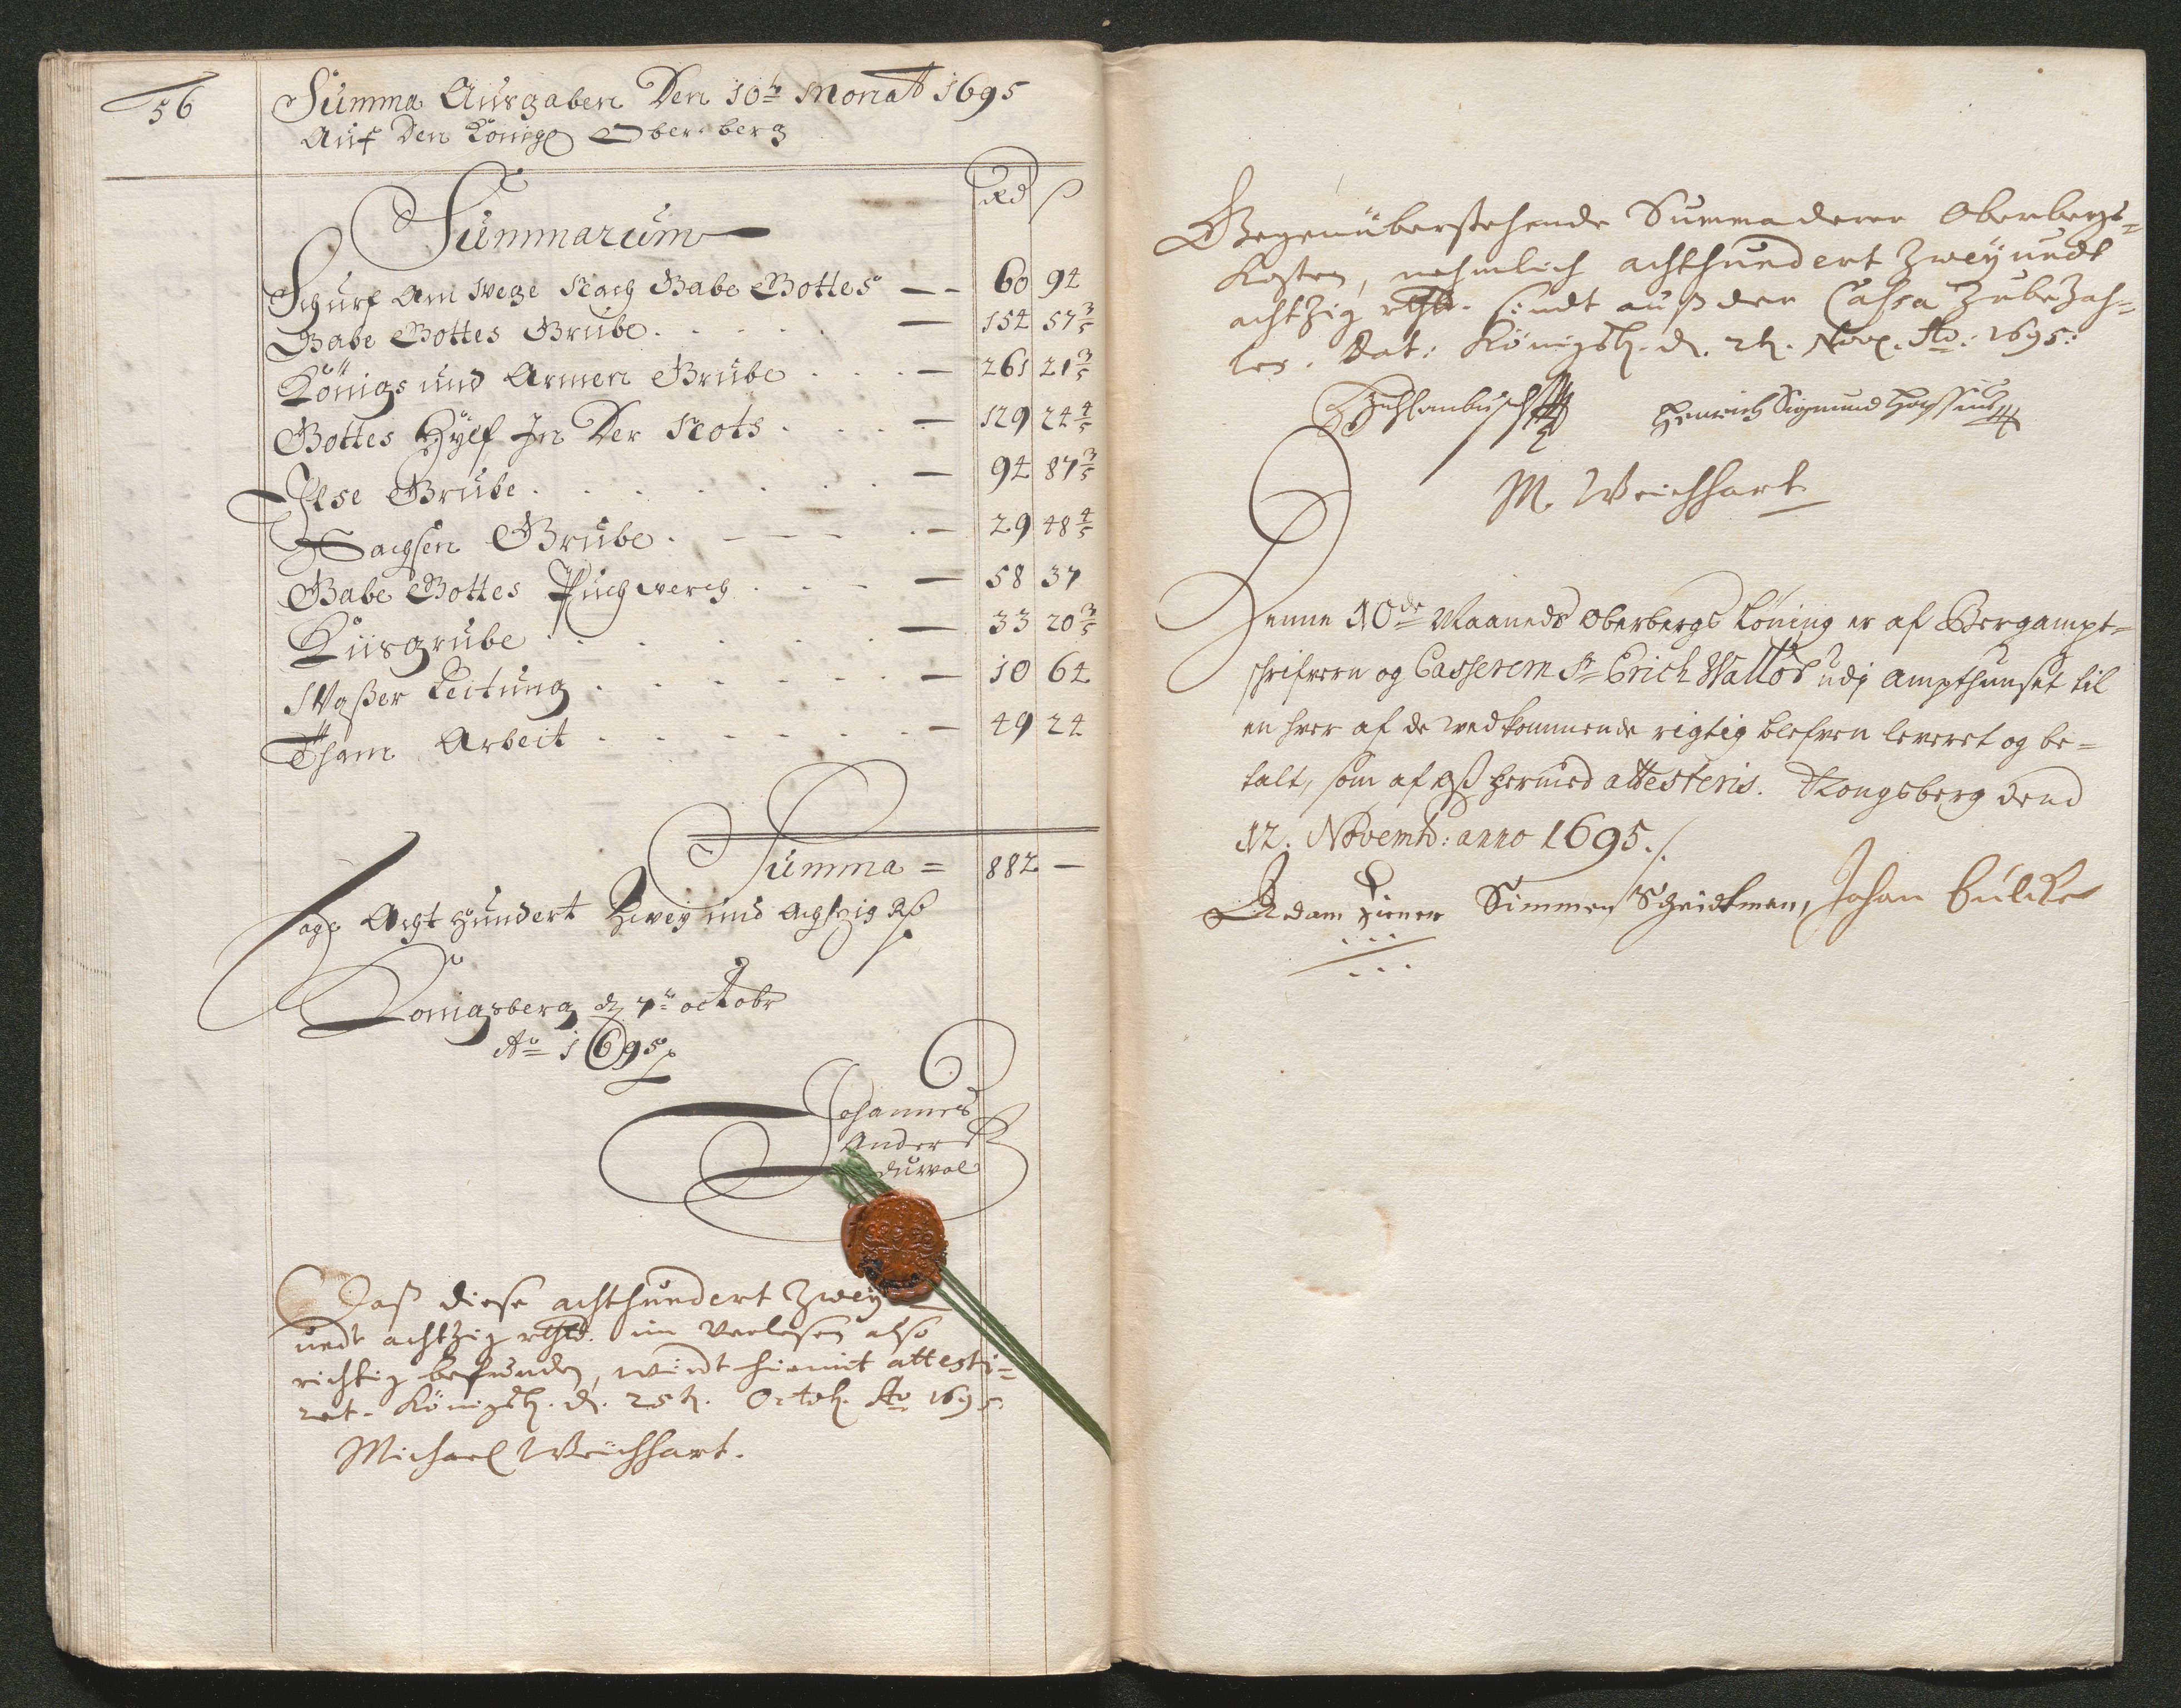 56
Summa Ausgaben Den 10ts Monat 1695
Auf Den Königs Ober berg
Rd ß
Summarum
Schurf Am Wege Nach Gabe Gottes 60 94
Gabe Gottes Grube 154 57 3/5
Königs und Armen Grube 261 21 3/5
Gottes Hylf In Der Noth 129 24 4/5
Ilse Grube 94 87 3/5
Sachsen Grube 29 48 4/5
Gabe Gottes Puchwerch 58 37
Kiisgrube 33 20 3/5
Waßer Leitung 10 64
Tham Arbeit 49 24
Summa = 882 —
Sage Acht Hundert Zwey und Achtzig
Konigsberg d 7 octobr
Ao 1695
Johannes
Anders
Daß diese achthundert Zwey
undt achtzig rthlr. im Verlesen also
richtig befunden, wirdt hiermit attesti=
ret. Königsb. d. 25t. Octob. Ao 1695
Michael Weichhart.
Gegenüberstehende Summa derer Oberbergs=
Kosten, nehmlich achthundert Zwey undt
achtzig rthlr. sindt auß der Cassa Zubezah=
len. Dat: Königsb. d. 2t. Nov. Ao: 1695:
Schlanbusch Henrich Sigmund
M. Weichhart
Denne 10de Maaneds Oberbergs Löning er af Bergampt=
schrifvern og Casserern Sr Erich Wallor udj Ampthuuset til
en hver af de vedkommende rigtig blefven leveret og be=
talt, som af oß hermed attesteris. Kongsberg dend
12. Novemb: anno 1695./.
Adam Ziener Simmen Scheidtman, Johan